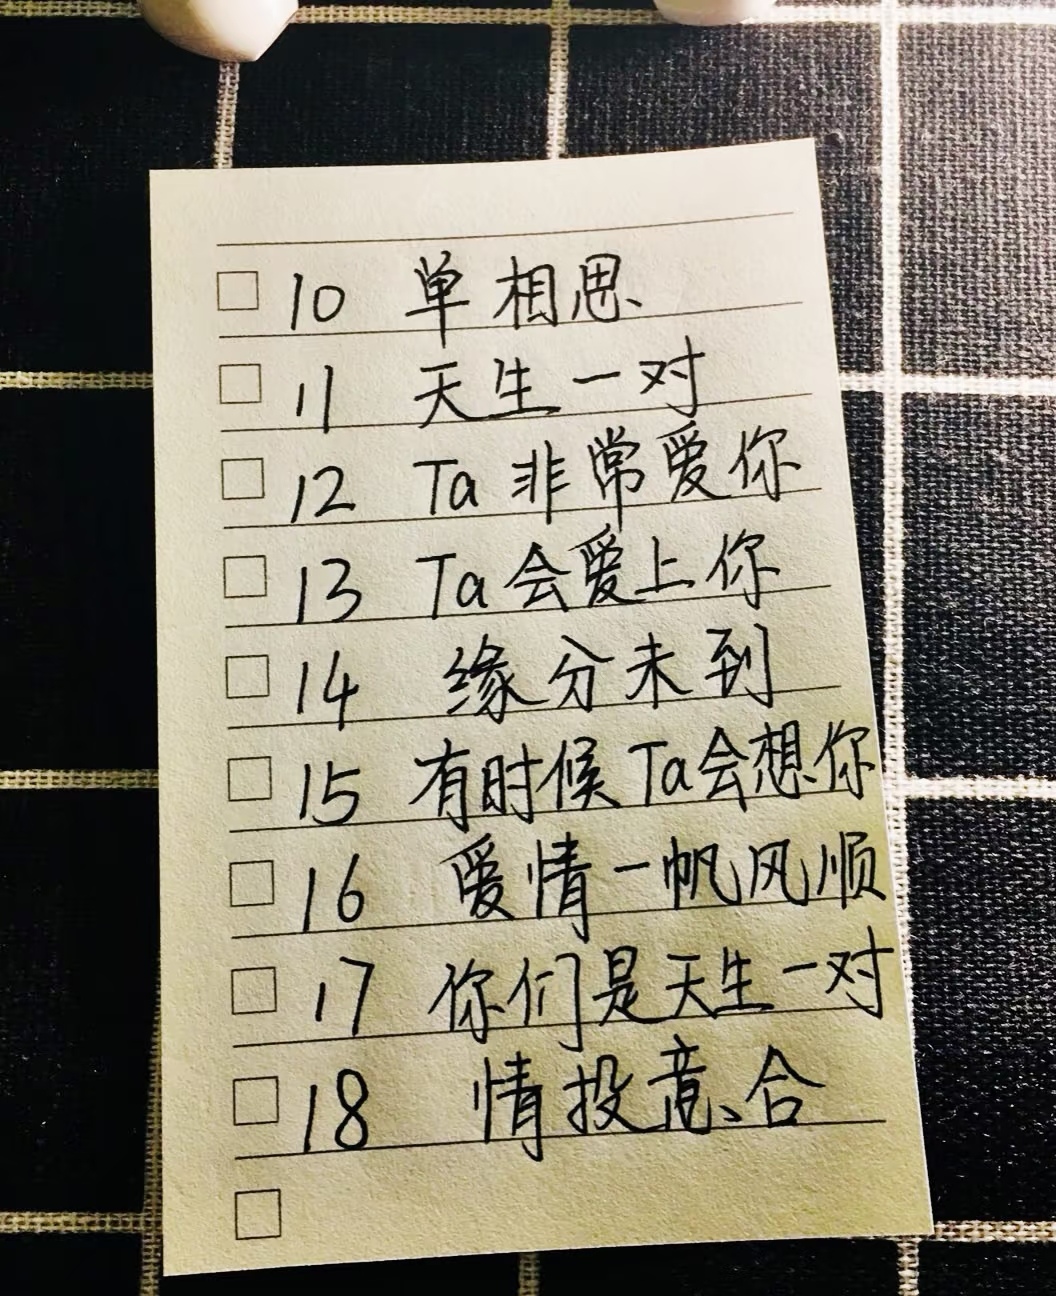 10 单相思
11 天生一对
12 Ta非常爱你
13 Ta会爱上你
14 缘分未到
15 有时候Ta会想你
16 爱情一帆风顺
17 你们是天生一对
18 情投意合